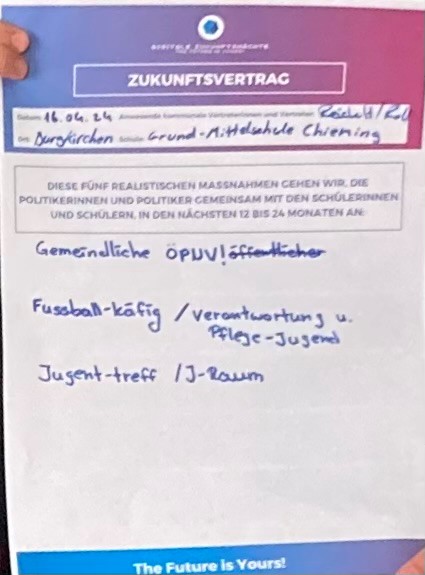 DIGITALE ZUKUNFTSNÄCHTE
THE FUTURE IS YOURS!
ZUKUNFTSVERTRAG
Datum: 16.04.24 Anwesende kommunale Vertreterinnen und Vertreter:
Ort: Burgkirchen Schule: Grund-Mittelschule Chieming
DIESE FÜNF REALISTISCHEN MASSNAHMEN GEHEN WIR, DIE
POLITIKERINNEN UND POLITIKER GEMEINSAM MIT DEN SCHÜLERINNEN
UND SCHÜLERN, IN DEN NÄCHSTEN 12 BIS 24 MONATEN AN:
Gemeindliche ÖPUV! öffentlicher
Fussball-käfig / Verantwortung u.
Pflege-Jugend
Jugent-treff / J-Raum
The Future is Yours!